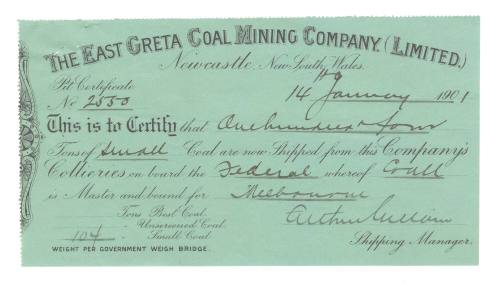 THE EAST GRETA COAL MINING COMPANY, (LIMITED.)
Newcastle, New South Wales.
Pit Certificate
No 2550
14th January 1901
This is to Certify that One hundred & four
Tons of Small Coal are now Shipped from this Company's
Collieries on board the Federal whereof Coull
is Master and bound for Melbourne
Tons Best Coal.
" Unscreened Coal.
104 " Small Coal
Arthur
Shipping Manager.
WEIGHT PER GOVERNMENT WEIGH BRIDGE.